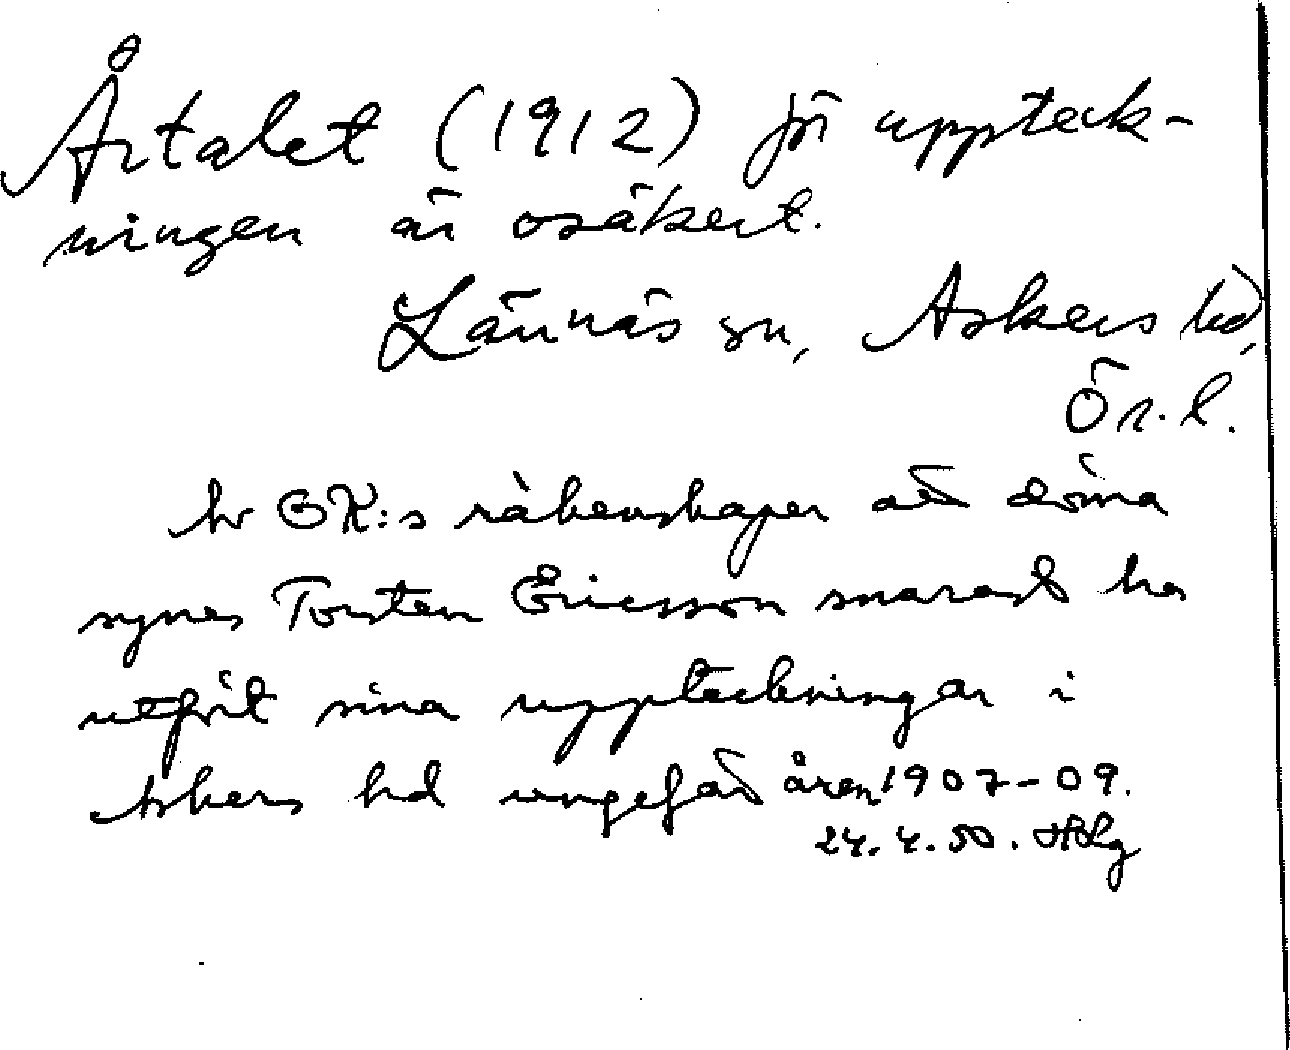 Årtalet (1912) för uppteck-
ningen är osäkert.
Lännäs sn, Askers hd,
Ör. l.
Av OK:s räkenskaper att döma
synes Torsten Ericsson snarast ha
utfört sina uppteckningar i
Askers hd ungefär åren 1907-09.
24.4.50.